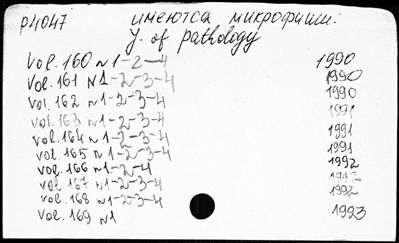 p4047 имеются микрофиши:
J. of pathology
Vol. 160 N1-2-4 1990
Vol. 161 N1-2-3-4 1990
Vol. 162 N1-2-3-4 1990
Vol. 163 N1-2-3-4 1991
Vol. 164 N1-2-3-4 1991
Vol. 165 N1-2-3-4 1991
Vol. 166 N1-2-4 1992
Vol. 167 N1-2-3-4 1992
Vol. 168 N1-2-3-4 1992
Vol. 169 N1 1993